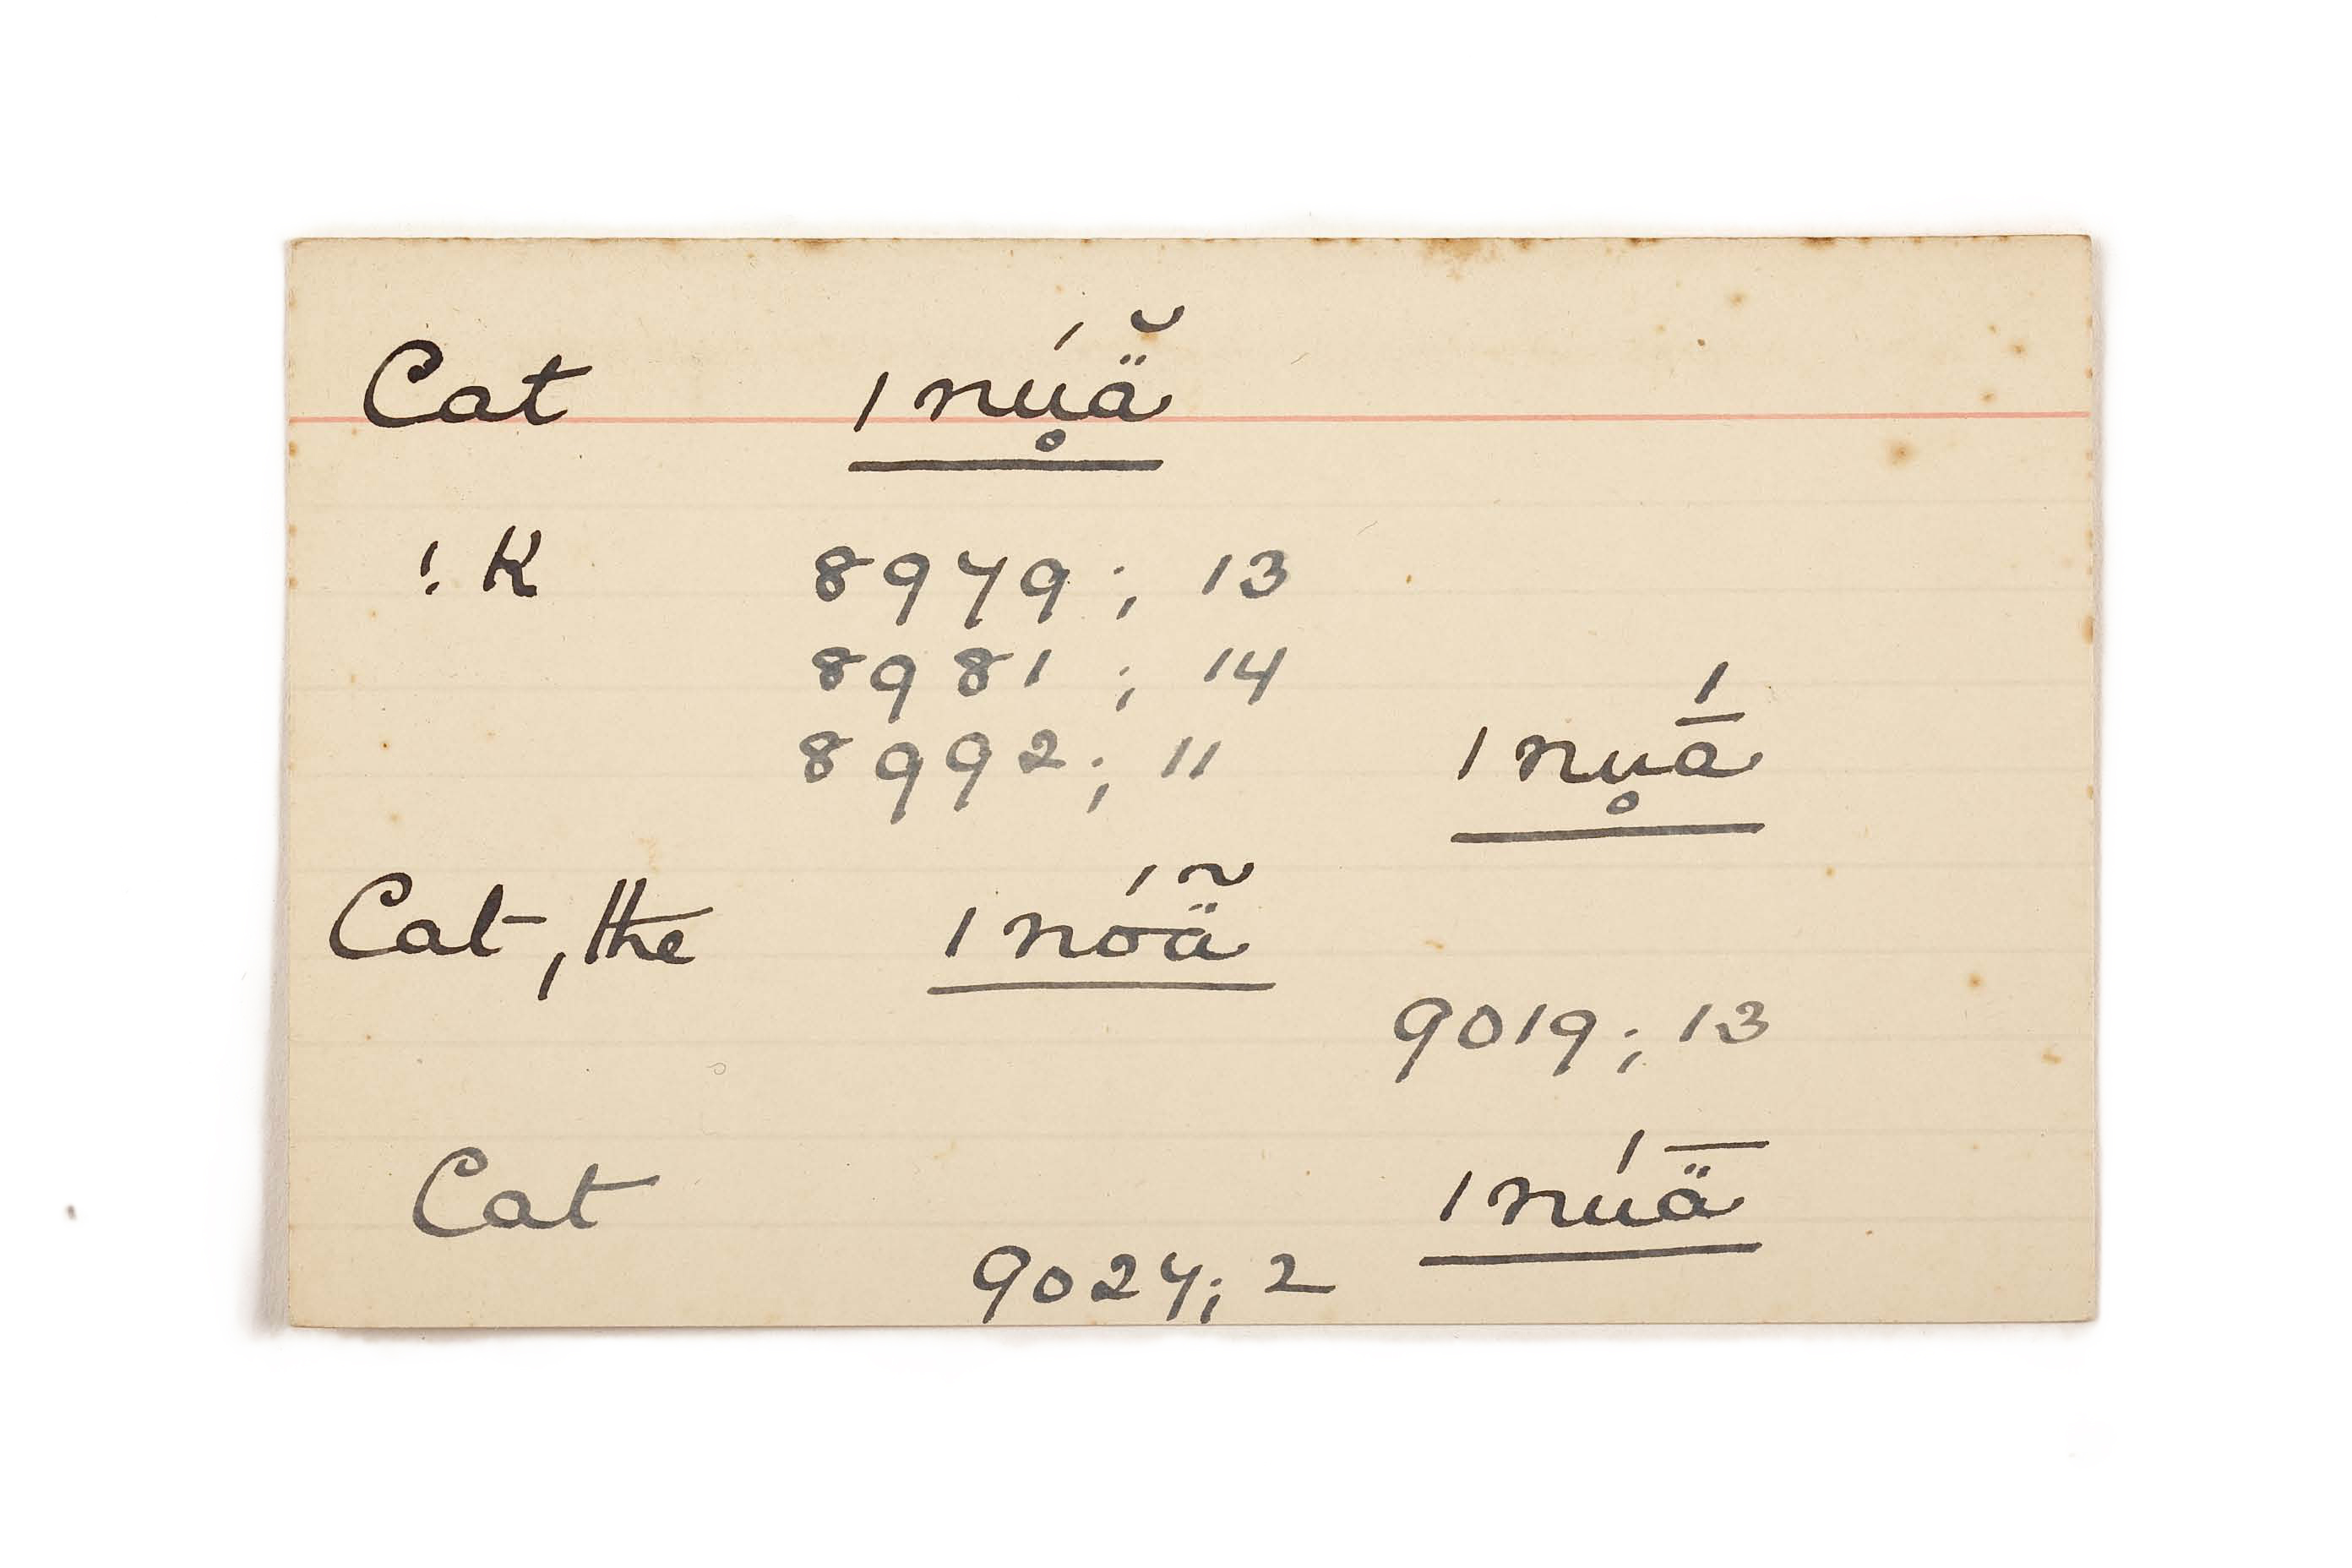 Cat |nú̥ä̆
!K 8979; 13
8981; 14
8992; 11 |nu̥ā́
Cat, the |nóä̃
9019; 13
Cat |núǟ
9027; 2